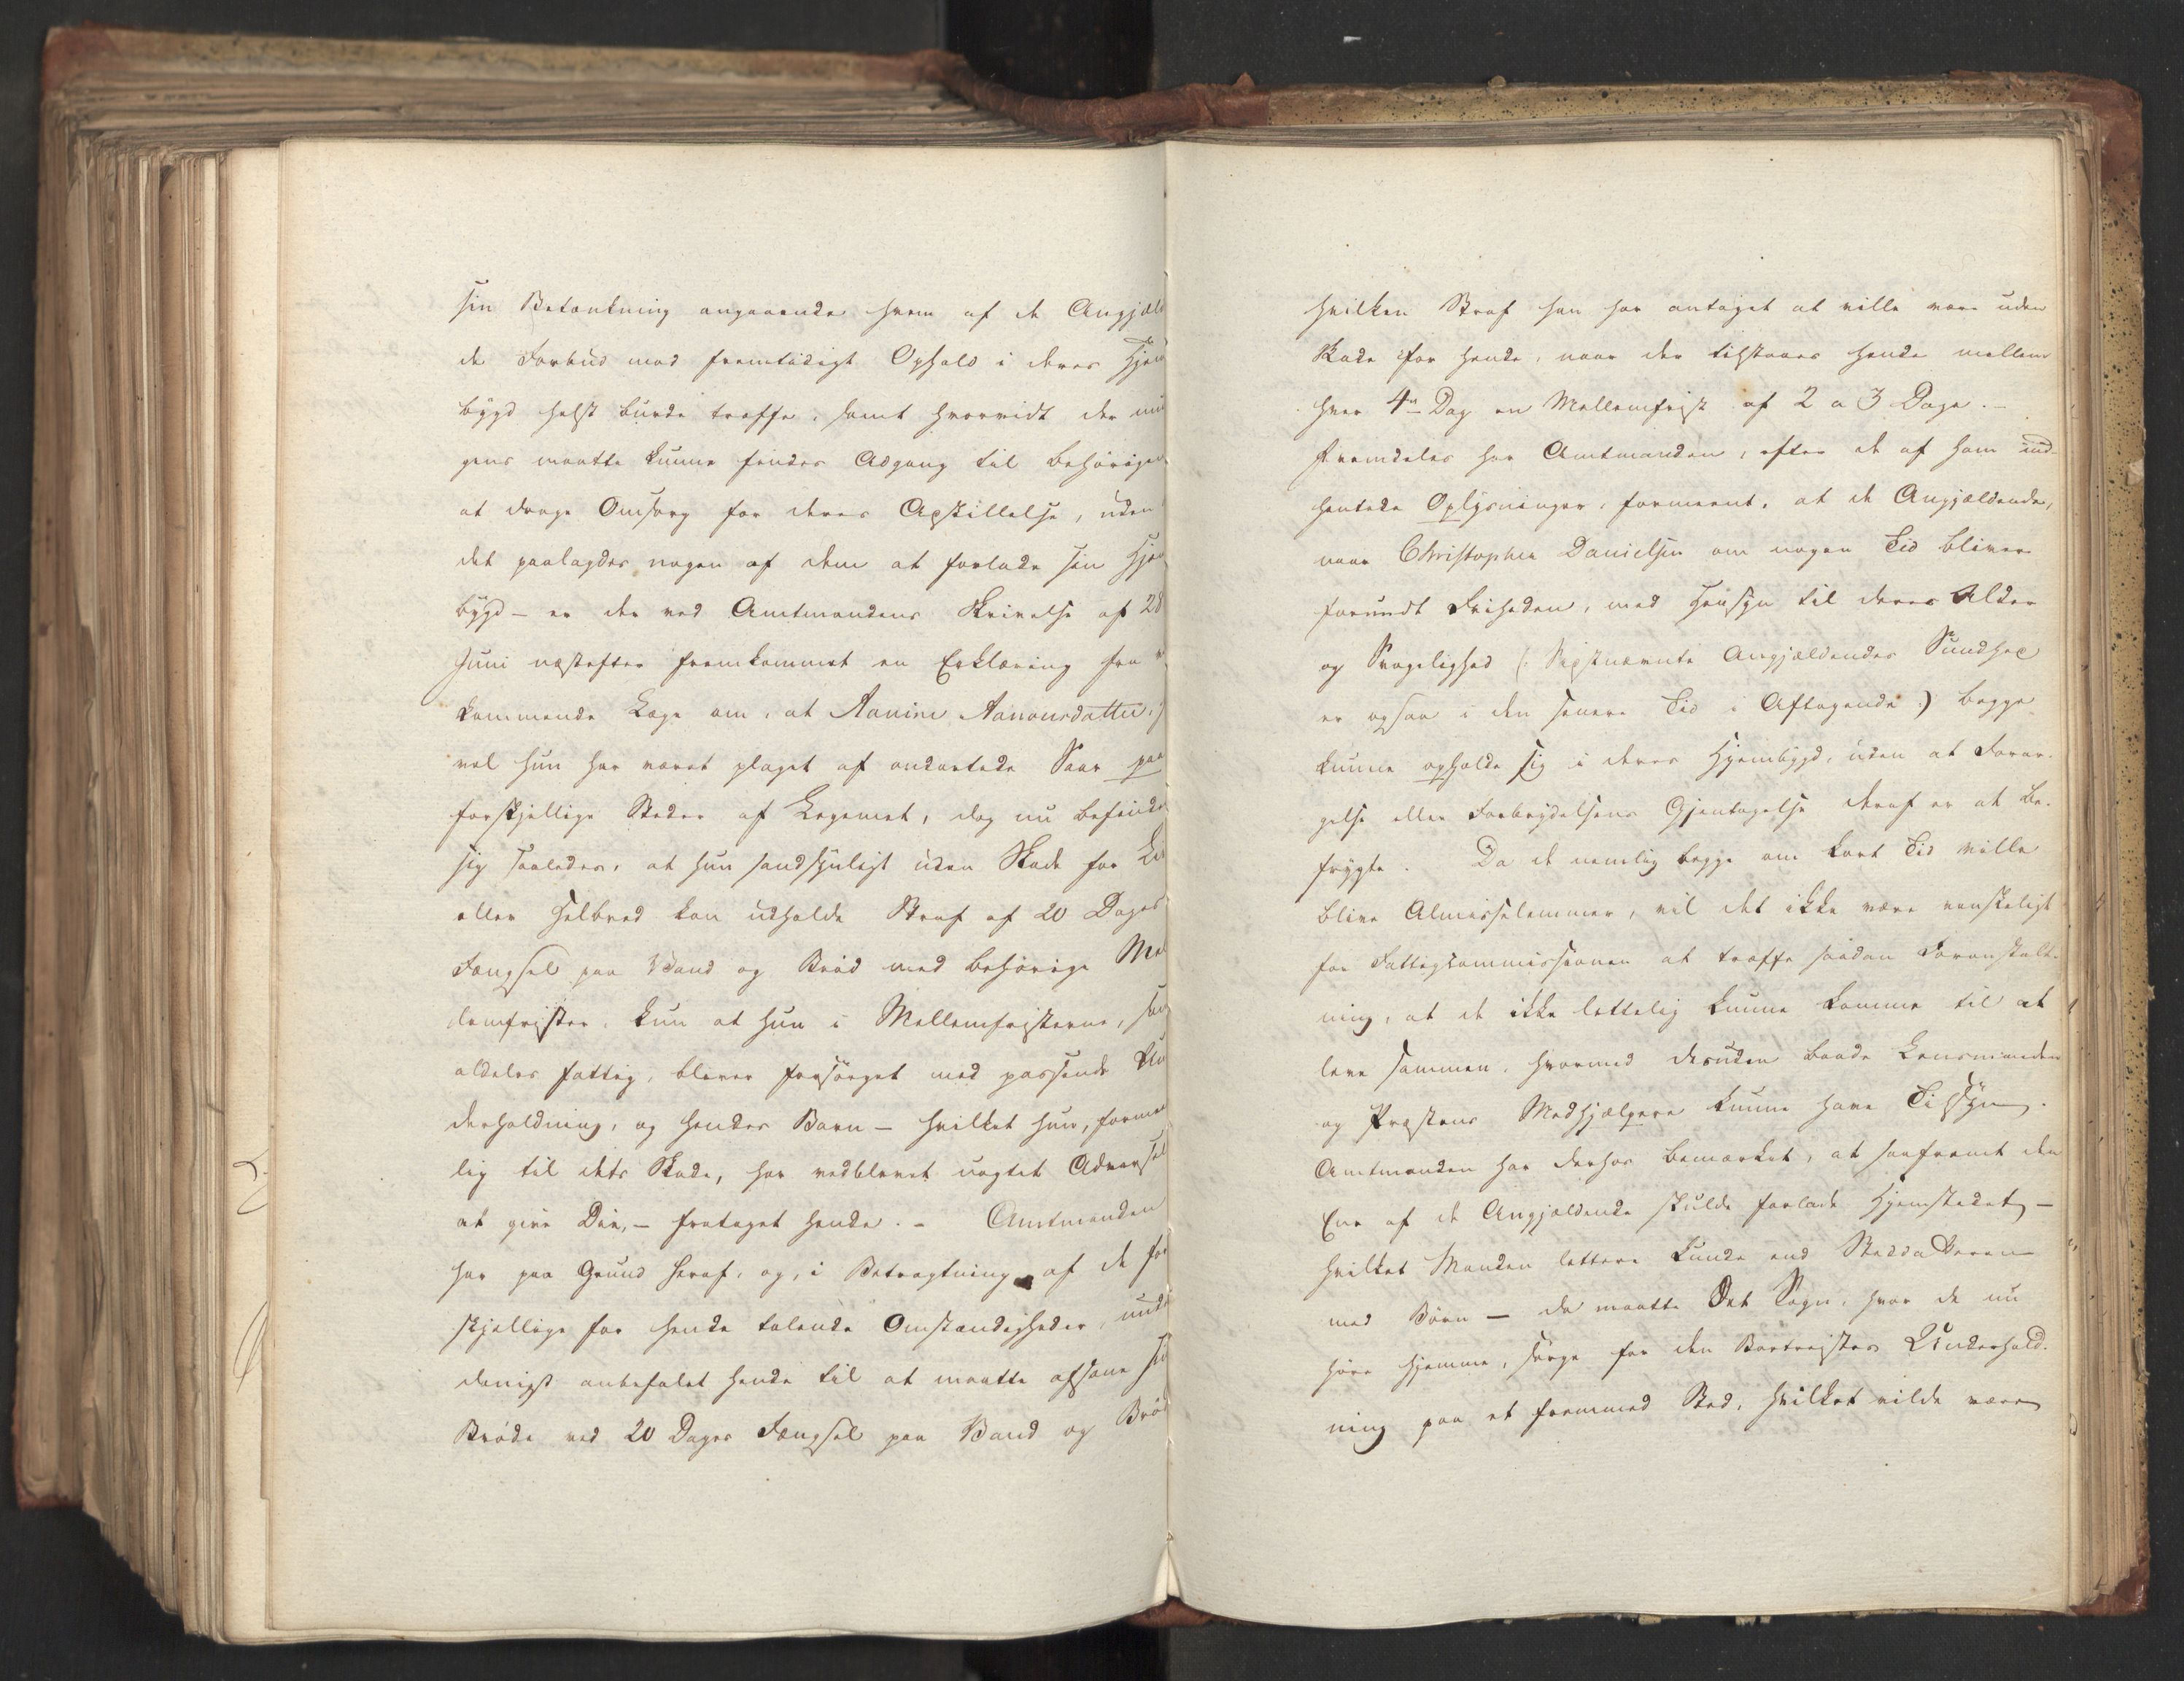 sin Betænkning angaaende hvem af de Angjæld
de Forbud mod fremtidigt Ophold i deres Hjem
bygd helst burde træffe, samt hvorvidt der mu
gens maatte kunne findes Adgang til behørigen
at drage Omsorg for deres Adskillelse, uden
det paalagdes nogen af dem at forlade sin Hje
bygd – er der ved Amtmandens Skrivelse af 28
Juni næstefter fremkommet en Erklæring fra v
kommende Læge om, at Aanine Aanonsdatter,
vel hun har været plaget af ondartede Saar paa
forskjellige Steder af Legemet, dog nu befinde
sig saaledes, at hun sandsynligt uden Skade for Li
eller Helbred kan udholde Straf af 20 Dages
Fængsel paa Vand og Brød med behørige Me
lemfrister, kun at hun i Mellemfristerne, som
aldeles fattig, bliver forsørget med passende Un
derholdning, og hendes Barn – hvilket hun, formee
lig til dets Skade, har vedblevet uagtet Advarsel
at give Die, – frataget hende. – Amtmanden
har paa Grund heraf, og, i Betragtning af de for
skjellige for hende talende Omstændigheder, unde
danigst anbefalet hende til at maatte afsone sin
Brøde ved 20 Dages Fængsel paa Vand og Brød
hvilken Straf han har antaget at ville være uden
Skade for hende, naar der tilstaaes hende mellem
hver 4de Dag en Mellemfrist af 2 a 3 Dage. –
Fremdeles har Amtmanden, efter de af ham ind-
hentede Oplysninger, formeent, at de Angjældende,
naar Christopher Danielsen om nogen Tid bliver
forundt Friheden, med Hensyn til deres Alder
og Svagelighed (: Sidstnævnte Angjældendes Sundhed
er ogsaa i den senere Tid i Aftagende :) begge
kunne opholde sig i deres Hjembygd, uden at Forar-
gelse eller Forbrydelsens Gjentagelse deraf er at be-
frygte. Da de nemlig begge om kort Tid ville
blive Almisselemmer, vil det ikke være vanskeligt
for Fattigcommissionen at træffe saadan Foranstalt-
ning, at de ikke lettelig kunne komme til at
leve sammen, hvormed desuden baade Lensmanden
og Præstens Medhjælpere kunne have Tilsyn.
Amtmanden har derhos bemærket, at saafremt den
Ene af de Angjældende skulde forlade Hjemstedet, –
hvilket Manden lettere kunde end Steddatteren
med Børn – da maatte Det Sogn, hvor de nu
høre hjemme, sørge for den Bortreistes Underhold-
ning paa et fremmed Sted, hvilket vilde være